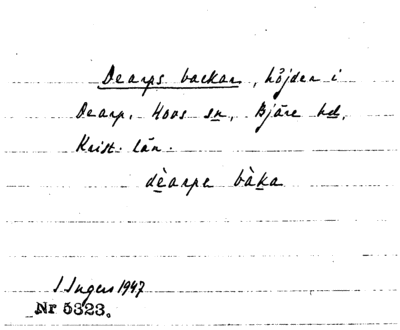 Dearps backar, höjder i
Dearp, Hovs sn, Bjäre hd,
Krist. län.
dèarpe bàka
I. Ingers 1947
Nr 5323.